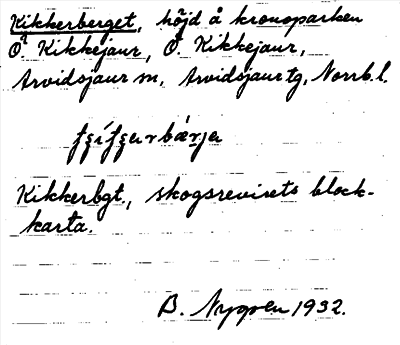 Kikkerberget, höjd å kronoparken
Ö. Kikkejaur, Ö. Kikkejaur,
Arvidsjaur sn, Arvidsjaur tg, Norrb.l.
Kikkerbgt, skogsrevirets block-
karta.
B. Nygren 1932.